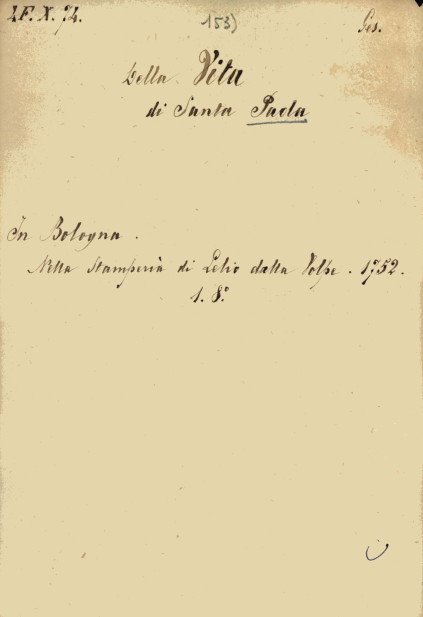 1.F.X.74. 153) Ges.
Della Vita
di Santa Paola
In Bologna.
Nella Stamperia di Lelio dalla Volpe. 1752.
1. 8°